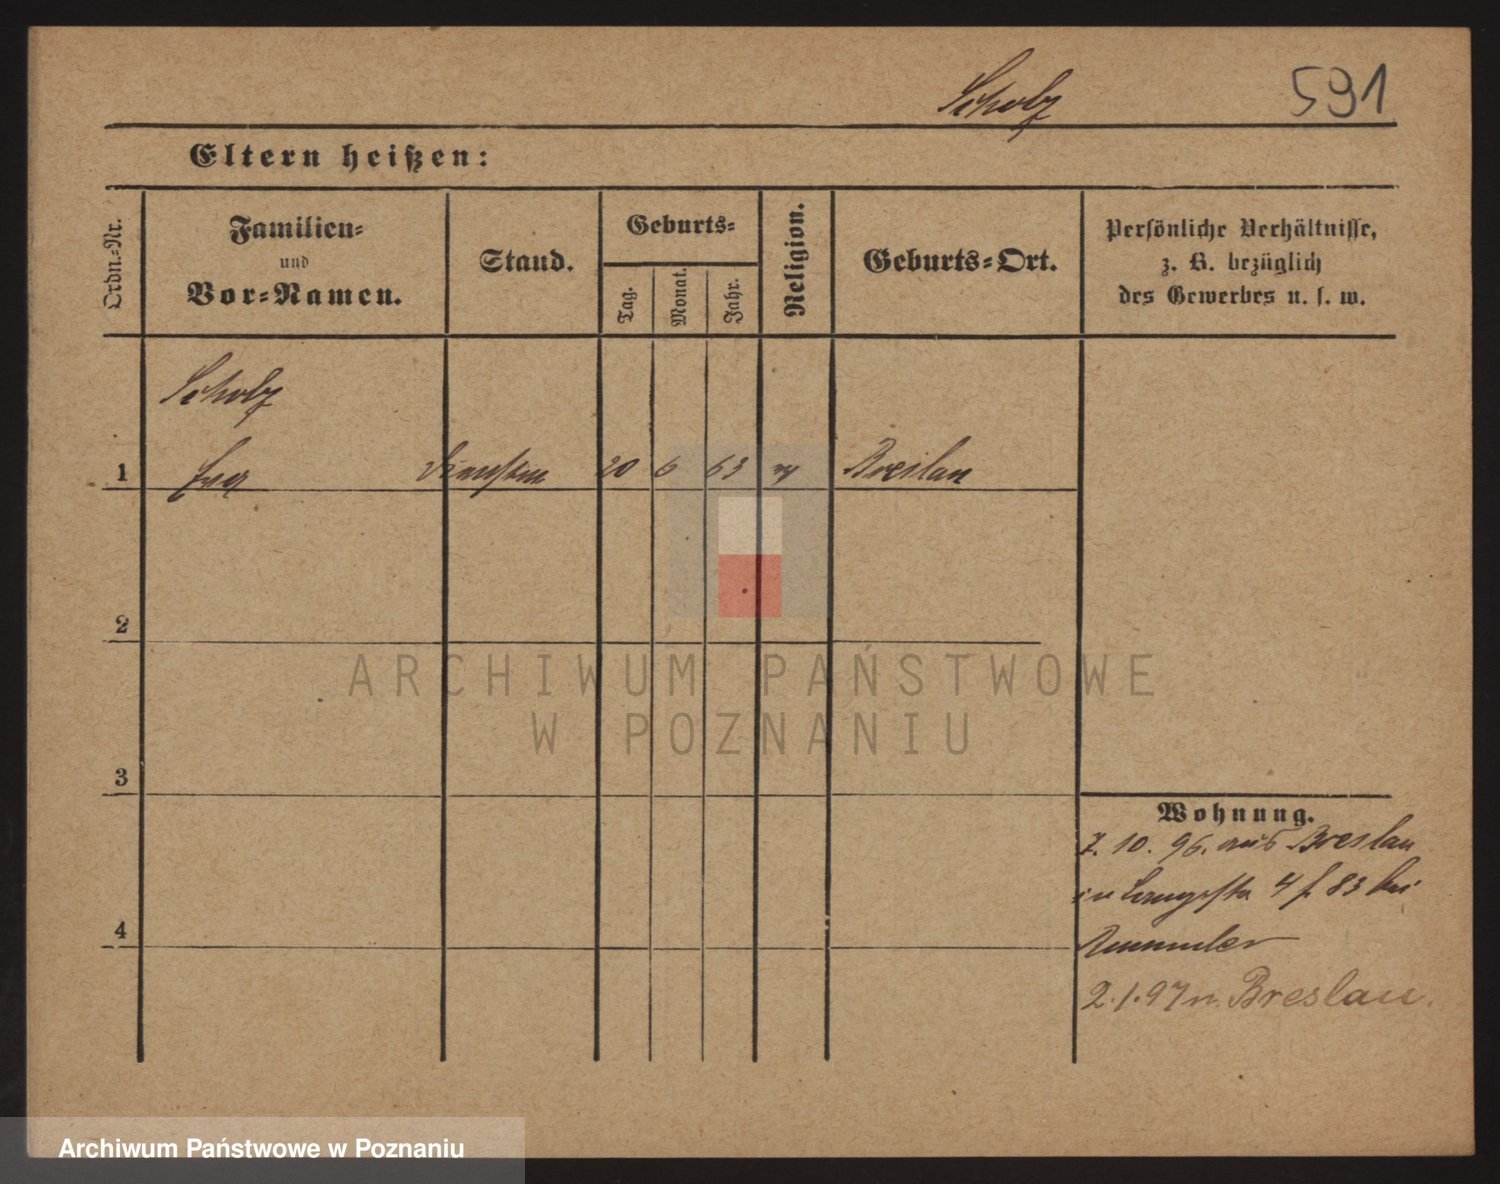 Scholz 591
Eltern heißen:
Ordn.-Nr.
Familien-
und
Vor-Namen.
Stand.
Geburts-
Tag.
Monat.
Jahr.
Religion.
Geburts-Ort.
Persönliche Verhältnisse,
z. B. bezüglich
des Gewerbes u. s. w.
Scholz
1 20 6 63 Breslau
2
ARCHIWUM PAŃSTWOWE
W POZNANIU
3
Wohnung.
7. 10. 96. aus Breslau
in 4 f 83 bei
4
2.1.97 n. Breslau.
Archiwum Państwowe w Poznaniu